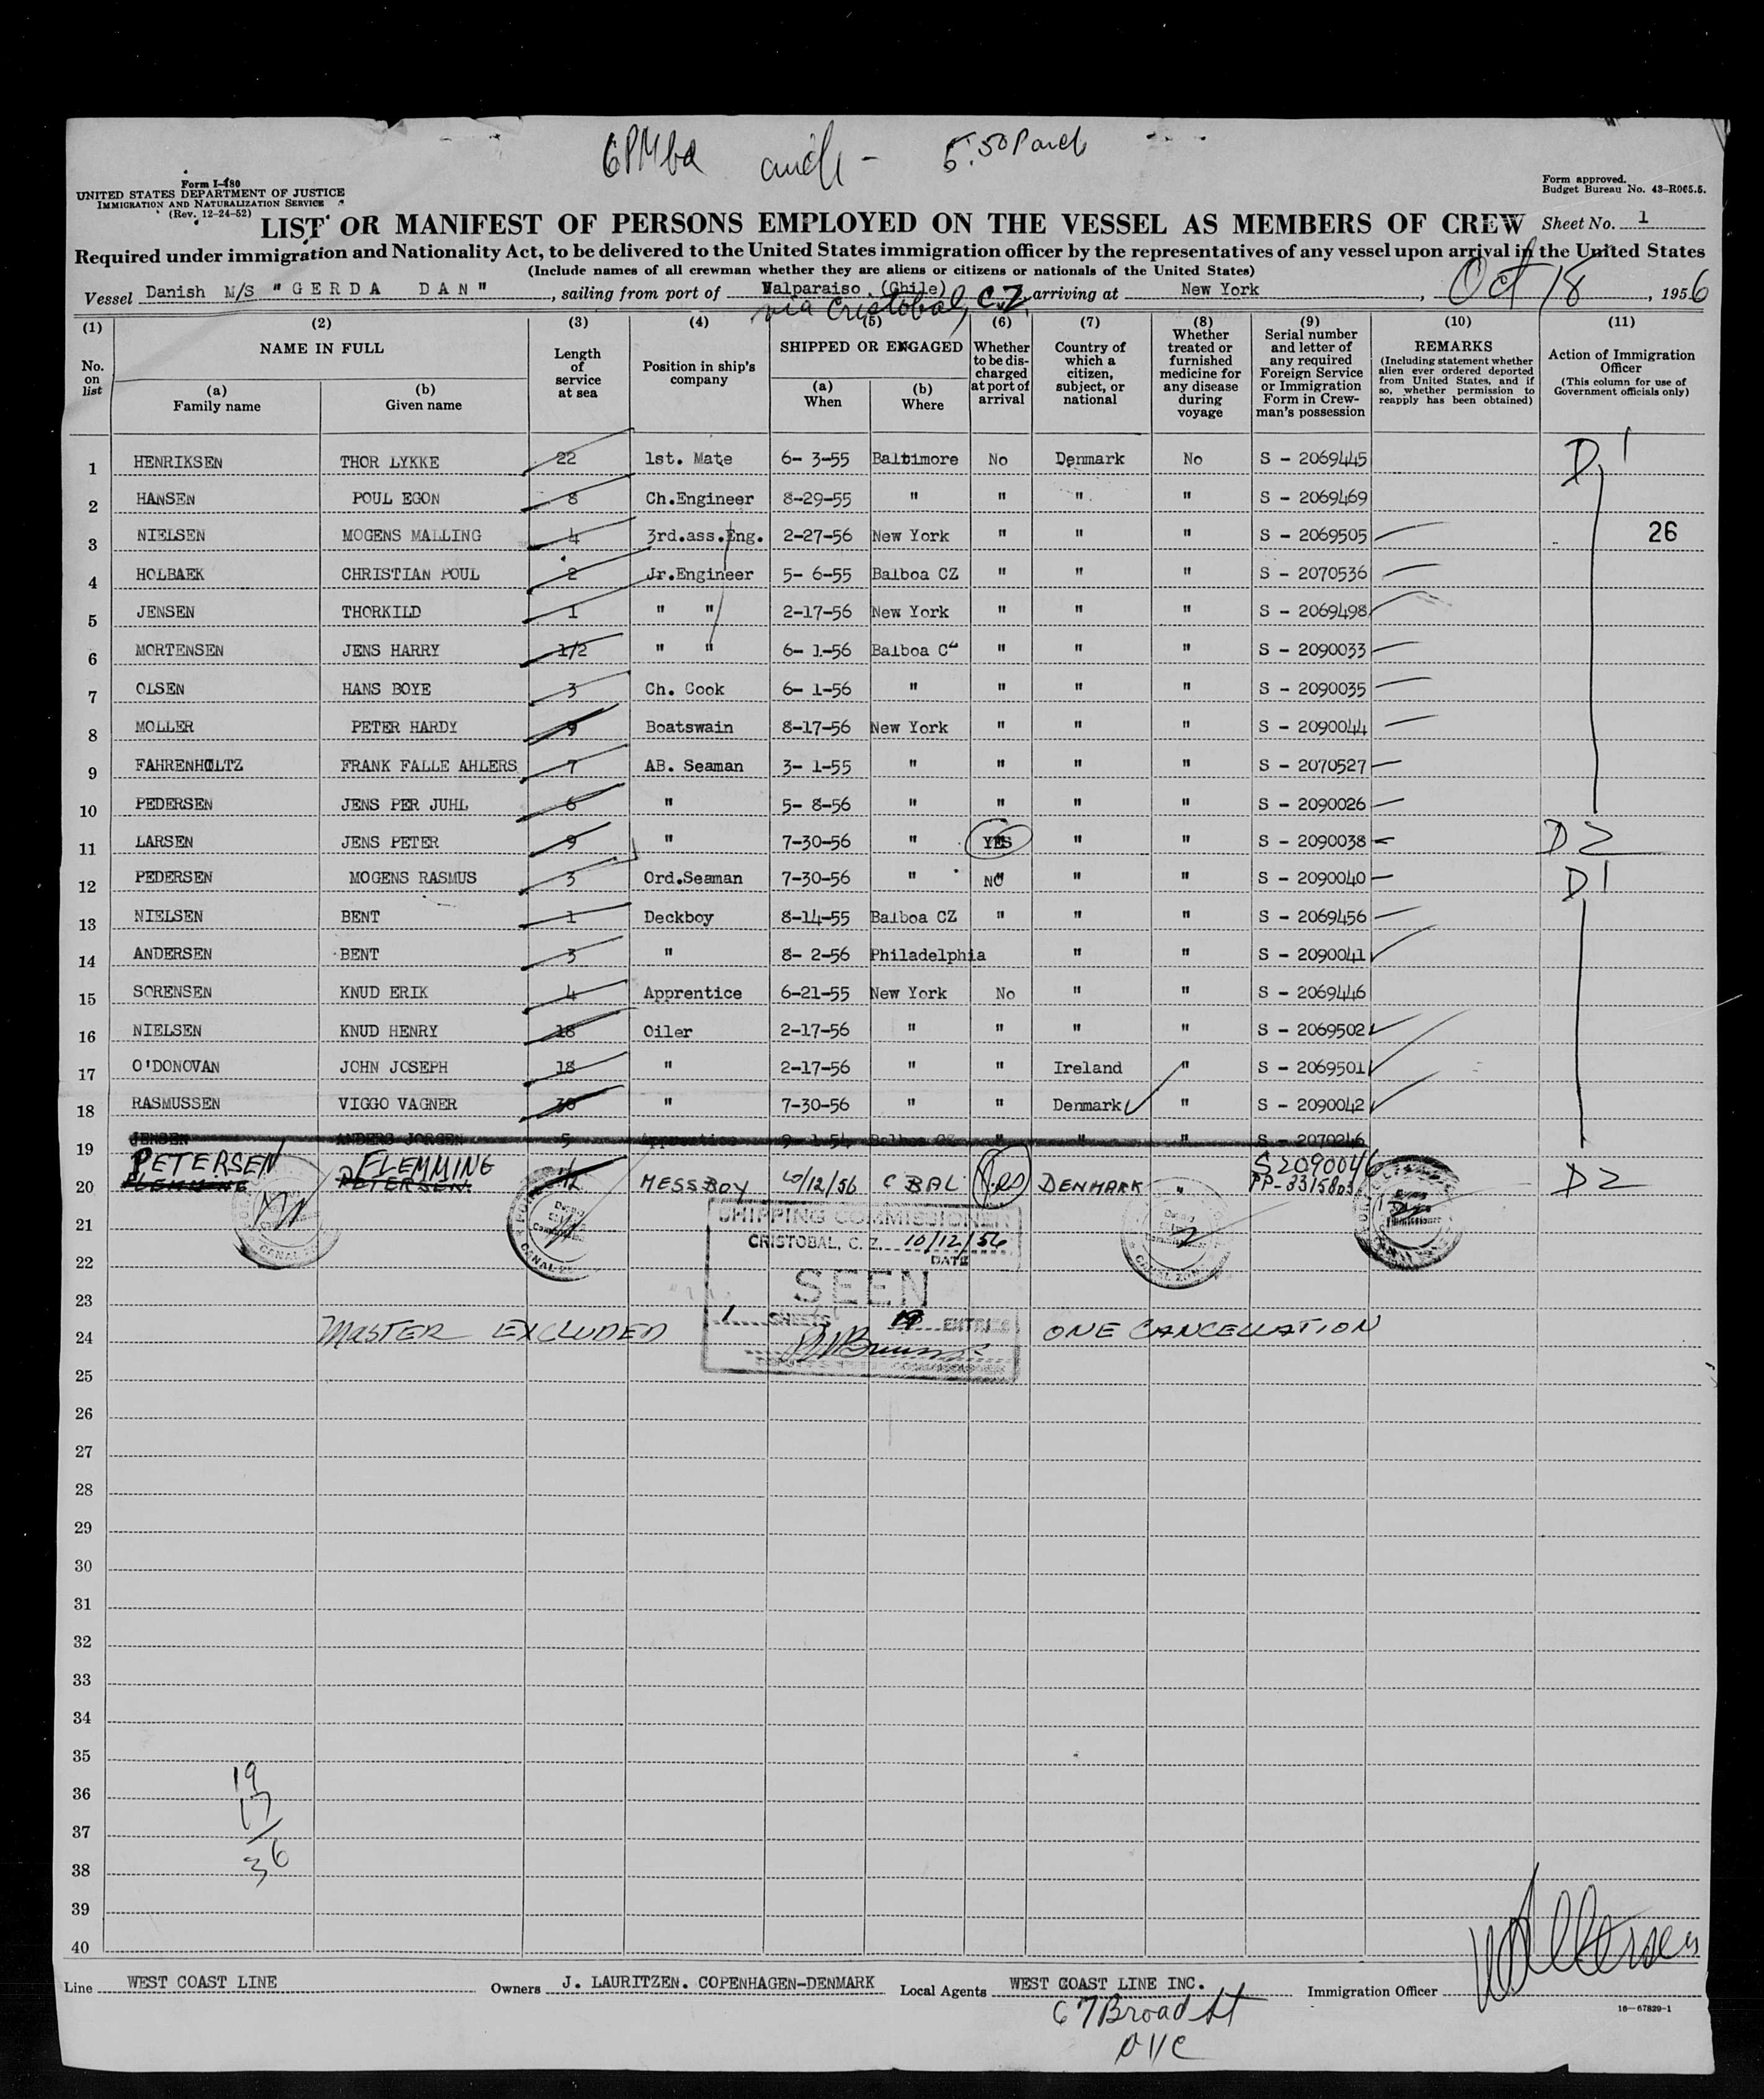 6PM
5:50P
Form I-480
UNITED STATES DEPARTMENT OF JUSTICE
IMMIGRATION AND NATURALIZATION SERVICE
(Rev. 12-24-52)
Form approved.
Budget Bureau No. 43-R065.5.
LIST OR MANIFEST OF PERSONS EMPLOYED ON THE VESSEL AS MEMBERS OF CREW Sheet No. 1
Required under immigration and Nationality Act, to be delivered to the United States immigration officer by the representatives of any vessel upon arrival in the United States
(Include names of all crewman whether they are aliens or citizens or nationals of the United States)
Vessel Danish M/S "GERDA DAN", sailing from port of Valparaiso (Chile) arriving at New York, Oct 18, 1956
via Cristobal, C.Z.
(1) (2) (3) (4) (5) (6) (7) (8) (9) (10) (11)
No. on list
NAME IN FULL
(a) Family name
(b) Given name
Length of service at sea
Position in ship's company
SHIPPED OR ENGAGED
(a) When
(b) Where
Whether to be discharged at port of arrival
Country of which a citizen, subject, or national
Whether treated or furnished medicine for any disease during voyage
Serial number and letter of any required Foreign Service or Immigration Form in Crewman's possession
REMARKS
(Including statement whether alien ever ordered deported from United States, and if so, whether permission to reapply has been obtained)
Action of Immigration Officer
(This column for use of Government officials only)
1 HENRIKSEN THOR LYKKE 22 1st. Mate 6- 3-55 Baltimore No Denmark No S - 2069445 D1
2 HANSEN POUL EGON 8 Ch.Engineer 8-29-55 " " " " S - 2069469
3 NIELSEN MOGENS MALLING 4 3rd.ass.Eng. 2-27-56 New York " " " S - 2069505 26
4 HOLBAEK CHRISTIAN POUL 2 Jr.Engineer 5- 6-55 Balboa CZ " " " S - 2070536
5 JENSEN THORKILD 1 " " 2-17-56 New York " " " S - 2069498
6 MORTENSEN JENS HARRY 1/2 " " 6- 1-56 Balboa C " " " S - 2090033
7 OLSEN HANS BOYE 3 Ch. Cook 6- 1-56 " " " " S - 2090035
8 MOLLER PETER HARDY 9 Boatswain 8-17-56 New York " " " S - 2090044
9 FAHRENHOLTZ FRANK FALLE AHLERS 7 AB. Seaman 3- 1-55 " " " " S - 2070527
10 PEDERSEN JENS PER JUHL 6 " 5- 8-56 " " " " S - 2090026
11 LARSEN JENS PETER 9 " 7-30-56 " YES " " S - 2090038 D2
12 PEDERSEN MOGENS RASMUS 3 Ord.Seaman 7-30-56 " NO " " S - 2090040 D1
13 NIELSEN BENT 1 Deckboy 8-14-55 Balboa CZ " " " S - 2069456
14 ANDERSEN BENT 3 " 8- 2-56 Philadelphia " " S - 2090041
15 SORENSEN KNUD ERIK 4 Apprentice 6-21-55 New York No " " S - 2069446
16 NIELSEN KNUD HENRY 18 Oiler 2-17-56 " " " " S - 2069502
17 O'DONOVAN JOHN JOSEPH 18 " 2-17-56 " " Ireland " S - 2069501
18 RASMUSSEN VIGGO VAGNER 30 " 7-30-56 " " Denmark " S - 2090042
19 JENSEN ANDERS JORGEN 5 Apprentice 9- 1-54 Balboa CZ " " " S - 2070246
PETERSEN FLEMMING S2090046
20 FLEMMING PETERSEN 1/2 MESSBOY 10/12/56 C BAL Yes DENMARK " PP-331580 D2
21
SHIPPING COMMISSIONER
CRISTOBAL, C. Z. 10/12/56
DATE
22
SEEN
23
1 SHEETS 19 ENTRIES
24 MASTER EXCLUDED ONE CANCELLATION
25
26
27
28
29
30
31
32
33
34
35
19
36
17
37
36
38
39
40
Line WEST COAST LINE Owners J. LAURITZEN. COPENHAGEN-DENMARK Local Agents WEST COAST LINE INC. Immigration Officer
67 Broad St
NYC
16-67829-1